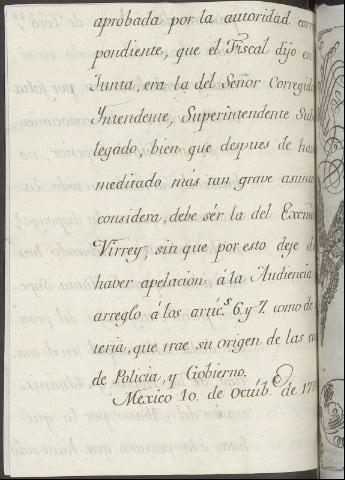 aprobada por la autoridad corre
pondiente, que el Fiscal dijo en
Junta, era la del Señor Corregid
Yntendente, Superintendente Sub
legado, bien que despues de ha
meditado más tan grave asunt
considera, debe sér la del Excmo
Virrey, sin que por esto deje d
haber apelacion á la Audiencia
arreglo á los artíc.s 6. y 7. como de
teria, que trae su origen de las ca
de Policia, y Gobierno.
Mexico 10. de Octüb.e de 17